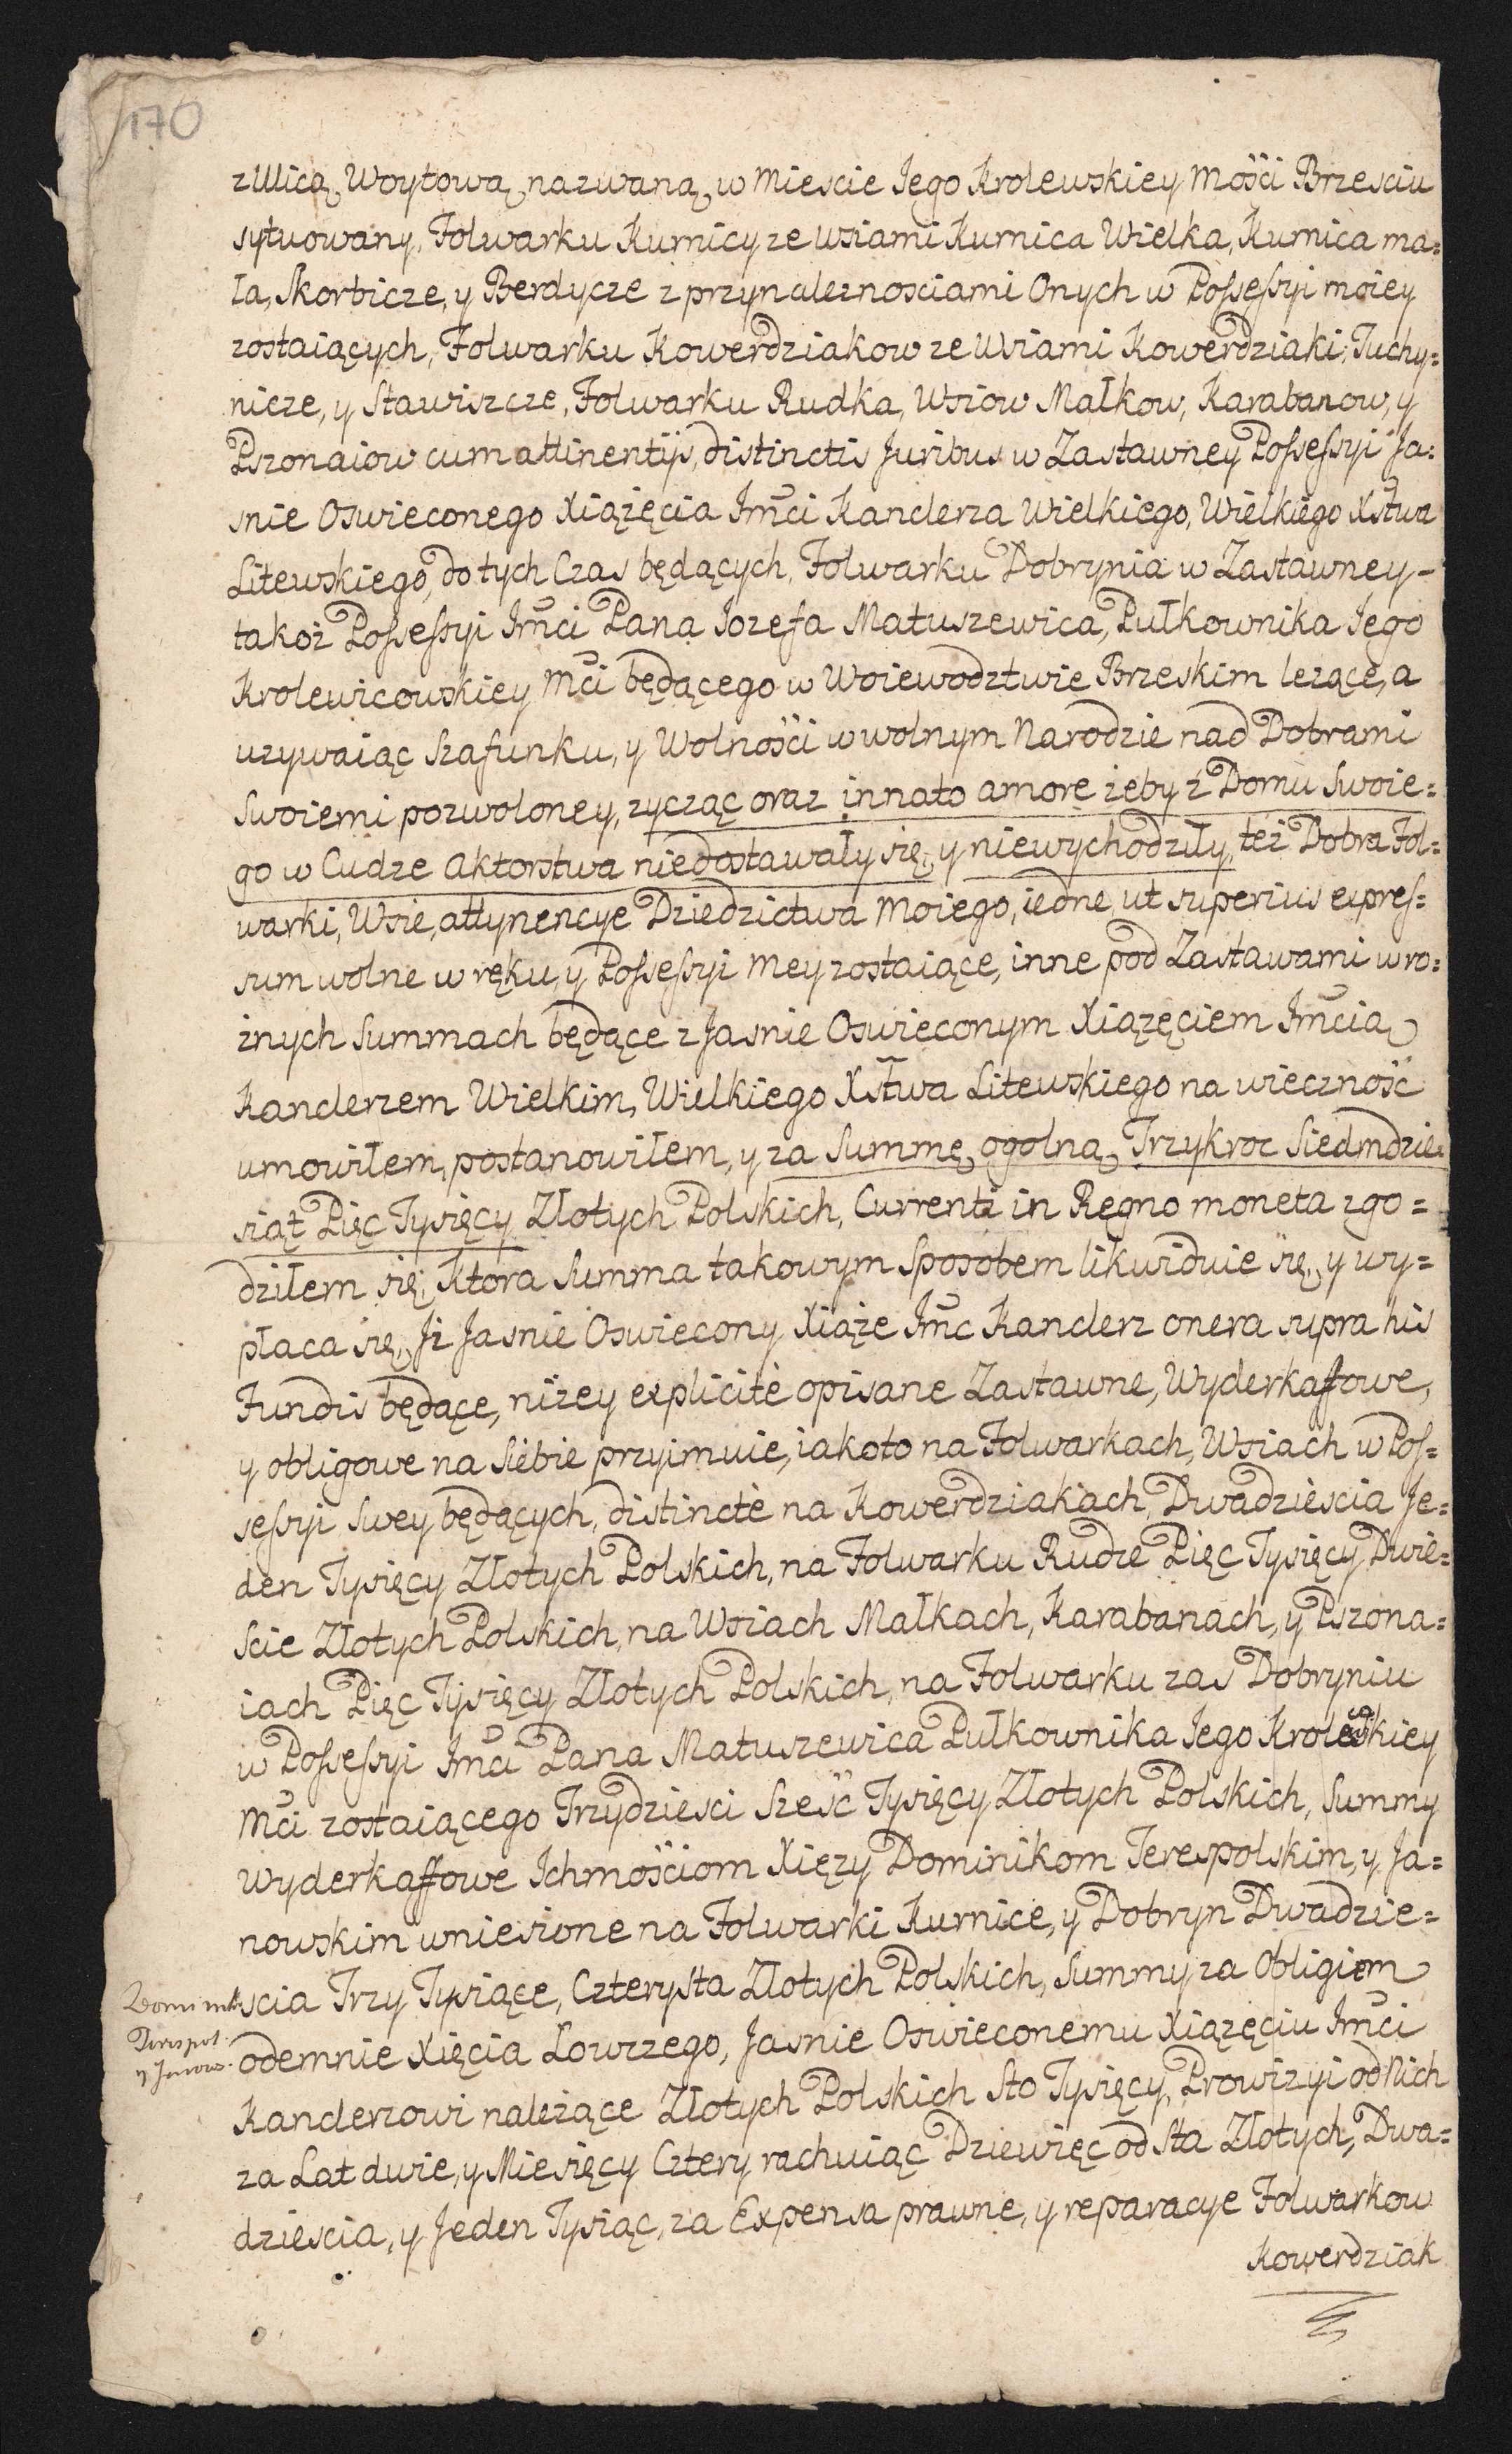 170
z Ulicą Woytową nazwaną w Miescie Jego Krolewskiey Mości Brzesciu
sytuowany, Folwarku Kurnicy ze Wsiami Kurnica Wielka, Kurnica ma=
ła, Skorbicze, y Berdycze z przynaleznosciami Onych w Possessyi moiey
zostaiących, Folwarku Kowerdziakow ze Wsiami Kowerdziaki, Tuchy=
nicze, y Stawiszcze, Folwarku Rudka, Wsiow Małkow, Karabanow, y
Pszonaiow cum attinentijs, distinctis Juribus w Zastawney Possessyi Ja=
snie Oswieconego Xiążęcia Jmci Kanclerza Wielkiego, Wielkiego Xstwa
Litewskiego, do tych Czas będących, Folwarku Dobrynia w Zastawney -
takoż Possessyi Jmci Pana Jozefa Matuszewica, Pułkownika Jego
Krolewicowskiey Mci będącego w Woiewodztwie Brzeskim leżące, a
uzywaiąc Szafunku, y Wolności w wolnym Narodzie nad Dobrami
Swoiemi pozwoloney, zycząc oraz innato amore żeby z Domu Swoie=
go w Cudze Aktorstwa niedostawały się, y niewychodziły, też Dobra Fol=
warki, Wsie, attynencye Dziedzictwa Moiego, iedne ut superius expres=
sum wolne w ręku, y Possessyi mey zostaiące, inne pod Zastawami w ro=
żnych Summach będące z Jasnie Oswieconym Xiążęciem Jmcią
Kanclerzem Wielkim, Wielkiego Xstwa Litewskiego na wieczność
umowiłem, postanowiłem, y za Summę ogolną Trzykroc Siedmdzie=
siąt Pięc Tysięcy Złotych Polskich, Currenti in Regno moneta zgo=
dziłem się, Ktora Summa takowym Sposobem likwiduie się, y wy=
płaca się, Jż Jasnie Oswiecony Xiąże Jmc Kanclerz onera supra his
Fundis będące, niżey explicitè opisane Zastawne, Wyderkaffowe,
y obligowe na Siebie przyimuie, iakoto na Folwarkach, Wsiach w Pos=
sessyi Swey będących, distinctè na Kowerdziakach, Dwadziescia Je=
den Tysięcy Złotych Polskich, na Folwarku Rudze Pięc Tysięcy Dwie=
scie Złotych Polskich, na Wsiach Małkach, Karabanach, y Pszona=
iach Pięc Tysięcy Złotych Polskich, na Folwarku zas Dobryniu
w Possessyi Jmci Pana Matuszewica Pułkownika Jego Kroleskiey
Mci zostaiącego Trzydziesci Sześć Tysięcy Złotych Polskich, Summy
Wyderkaffowe Ichmościom Xięzy Dominikom Terespolskim, y Ja=
nowskim wniesione na Folwarki Kurnice, y Dobryn Dwadzie=
scia Trzy Tysiące, Czterysta Złotych Polskich, Summy za Obligiem
odemnie Xięcia Łowczego, Jasnie Oswieconemu Xiążęciu Jmci
Kanclerzowi należące Złotych Polskich Sto Tysięcy, Prowizyi od Nich
za Lat dwie, y Miesięcy Cztery rachuiąc Dziewięc od Sta Złotych, Dwa=
dziescia, y Jeden Tysiąc, za Expensa prawne, y reparacye Folwarkow
Kowerdziak
Dominik
Terespol.
y Janow.